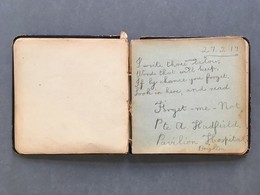 27.2.17
I write these
that will keep
If by chance you forget
Look in here and read
Forget-me-Not
Pte A Hadfield
Pavilion Hospital